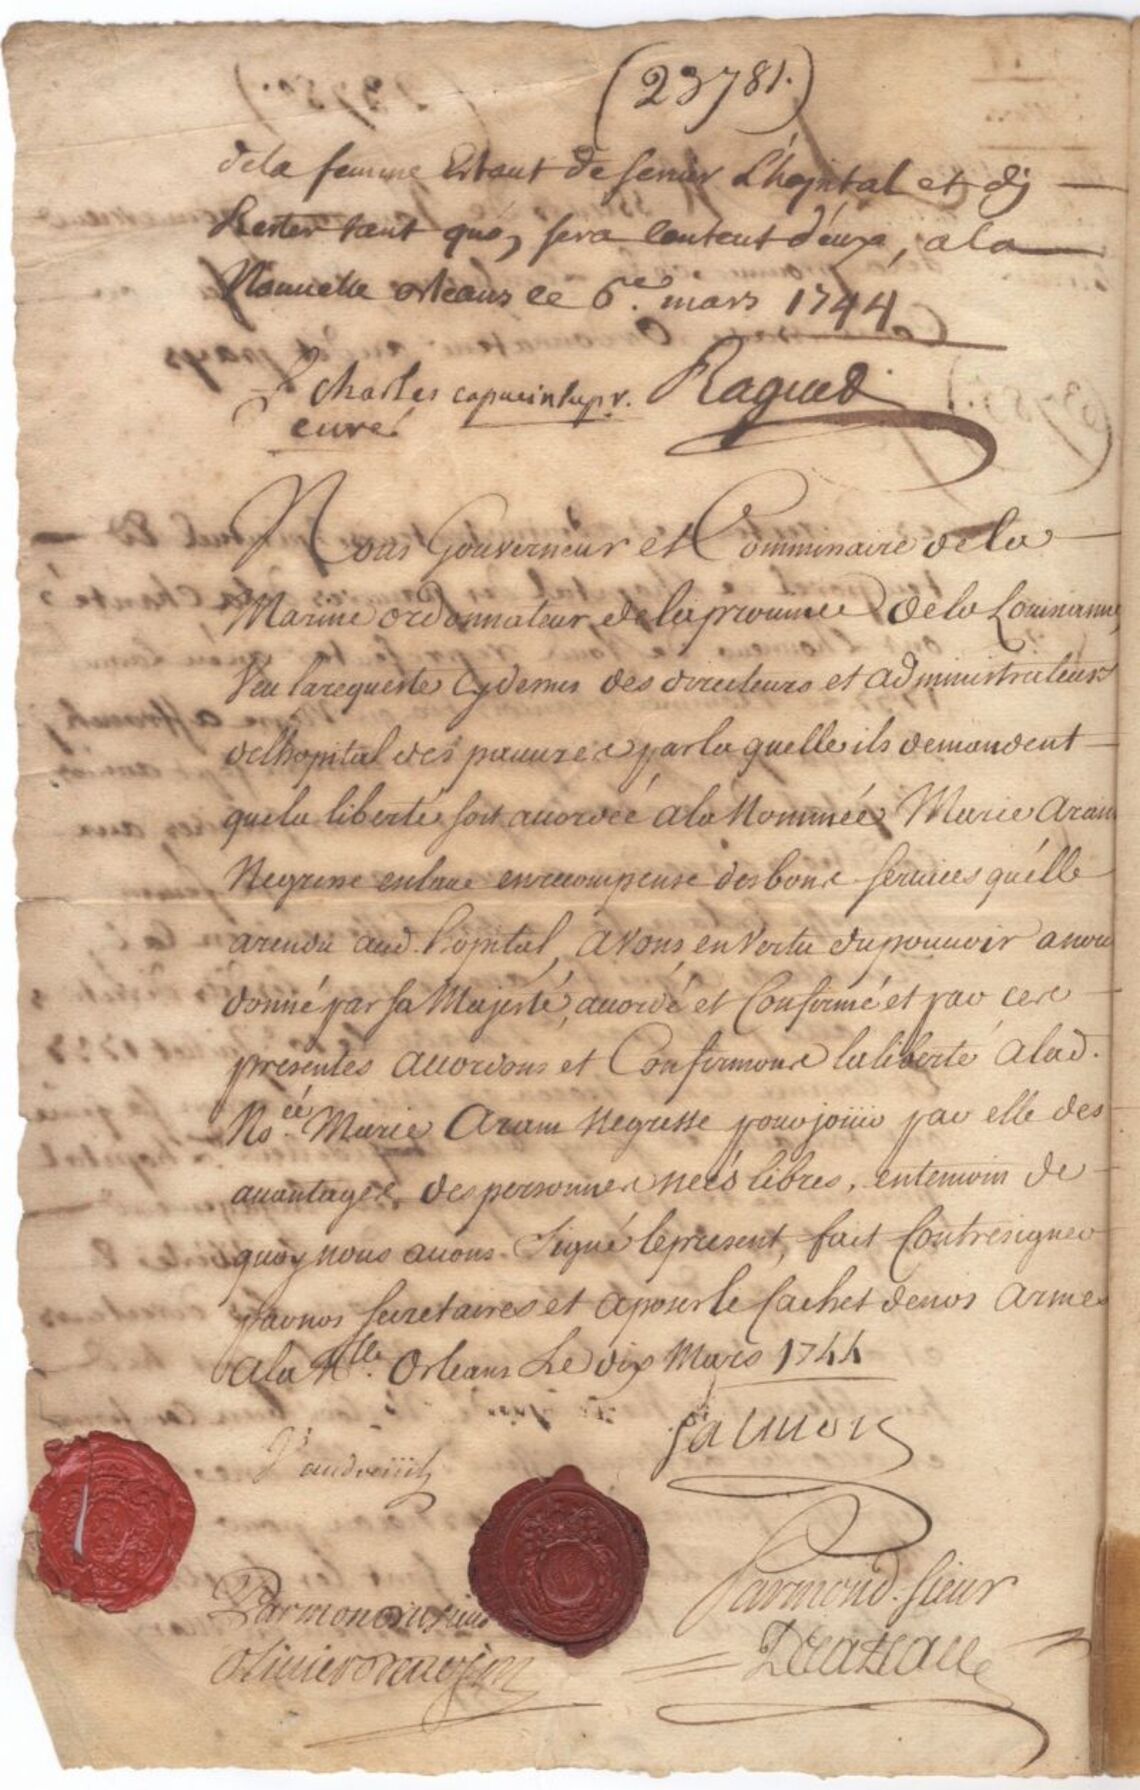 (23781.)
de la femme Estant de servir L'hopital et dy
Rester tant quon sera content d'eux, a la
Nouvelle orleans ce 6e. mars 1744
f. charles capucin supr. Raguet
curé
Nous Gouverneur et Commissaire de la
Marine ordonnateur de la province de la Louisianne,
Veu la requeste cy dessus des directeurs et administrateurs
de lhopital des pauvres par la quelle ils demandent
que la liberté soit accordée a la Nommée Marie Aram
Negresse esclave en recompense des bons services qu'elle
a rendu aud. hôpital, avons en Vertu du pouvoir a nous
donné par sa Majesté, accordé et Confirmé et par ces
presentes accordons et Confirmons la liberté à lad.
No.ée Marie Aram Negresse pour jouiir par elle des
avantages des personnes neés libres, en temoin de
quoy nous avons Signé le present, fait Contresigner
par nos secretaires et aposer le Cachet de nos armes
a la Nlle. Orleans Le dix Mars 1744
Vaudreüil Salmon
Par mond. sieur
Par mon
olivier